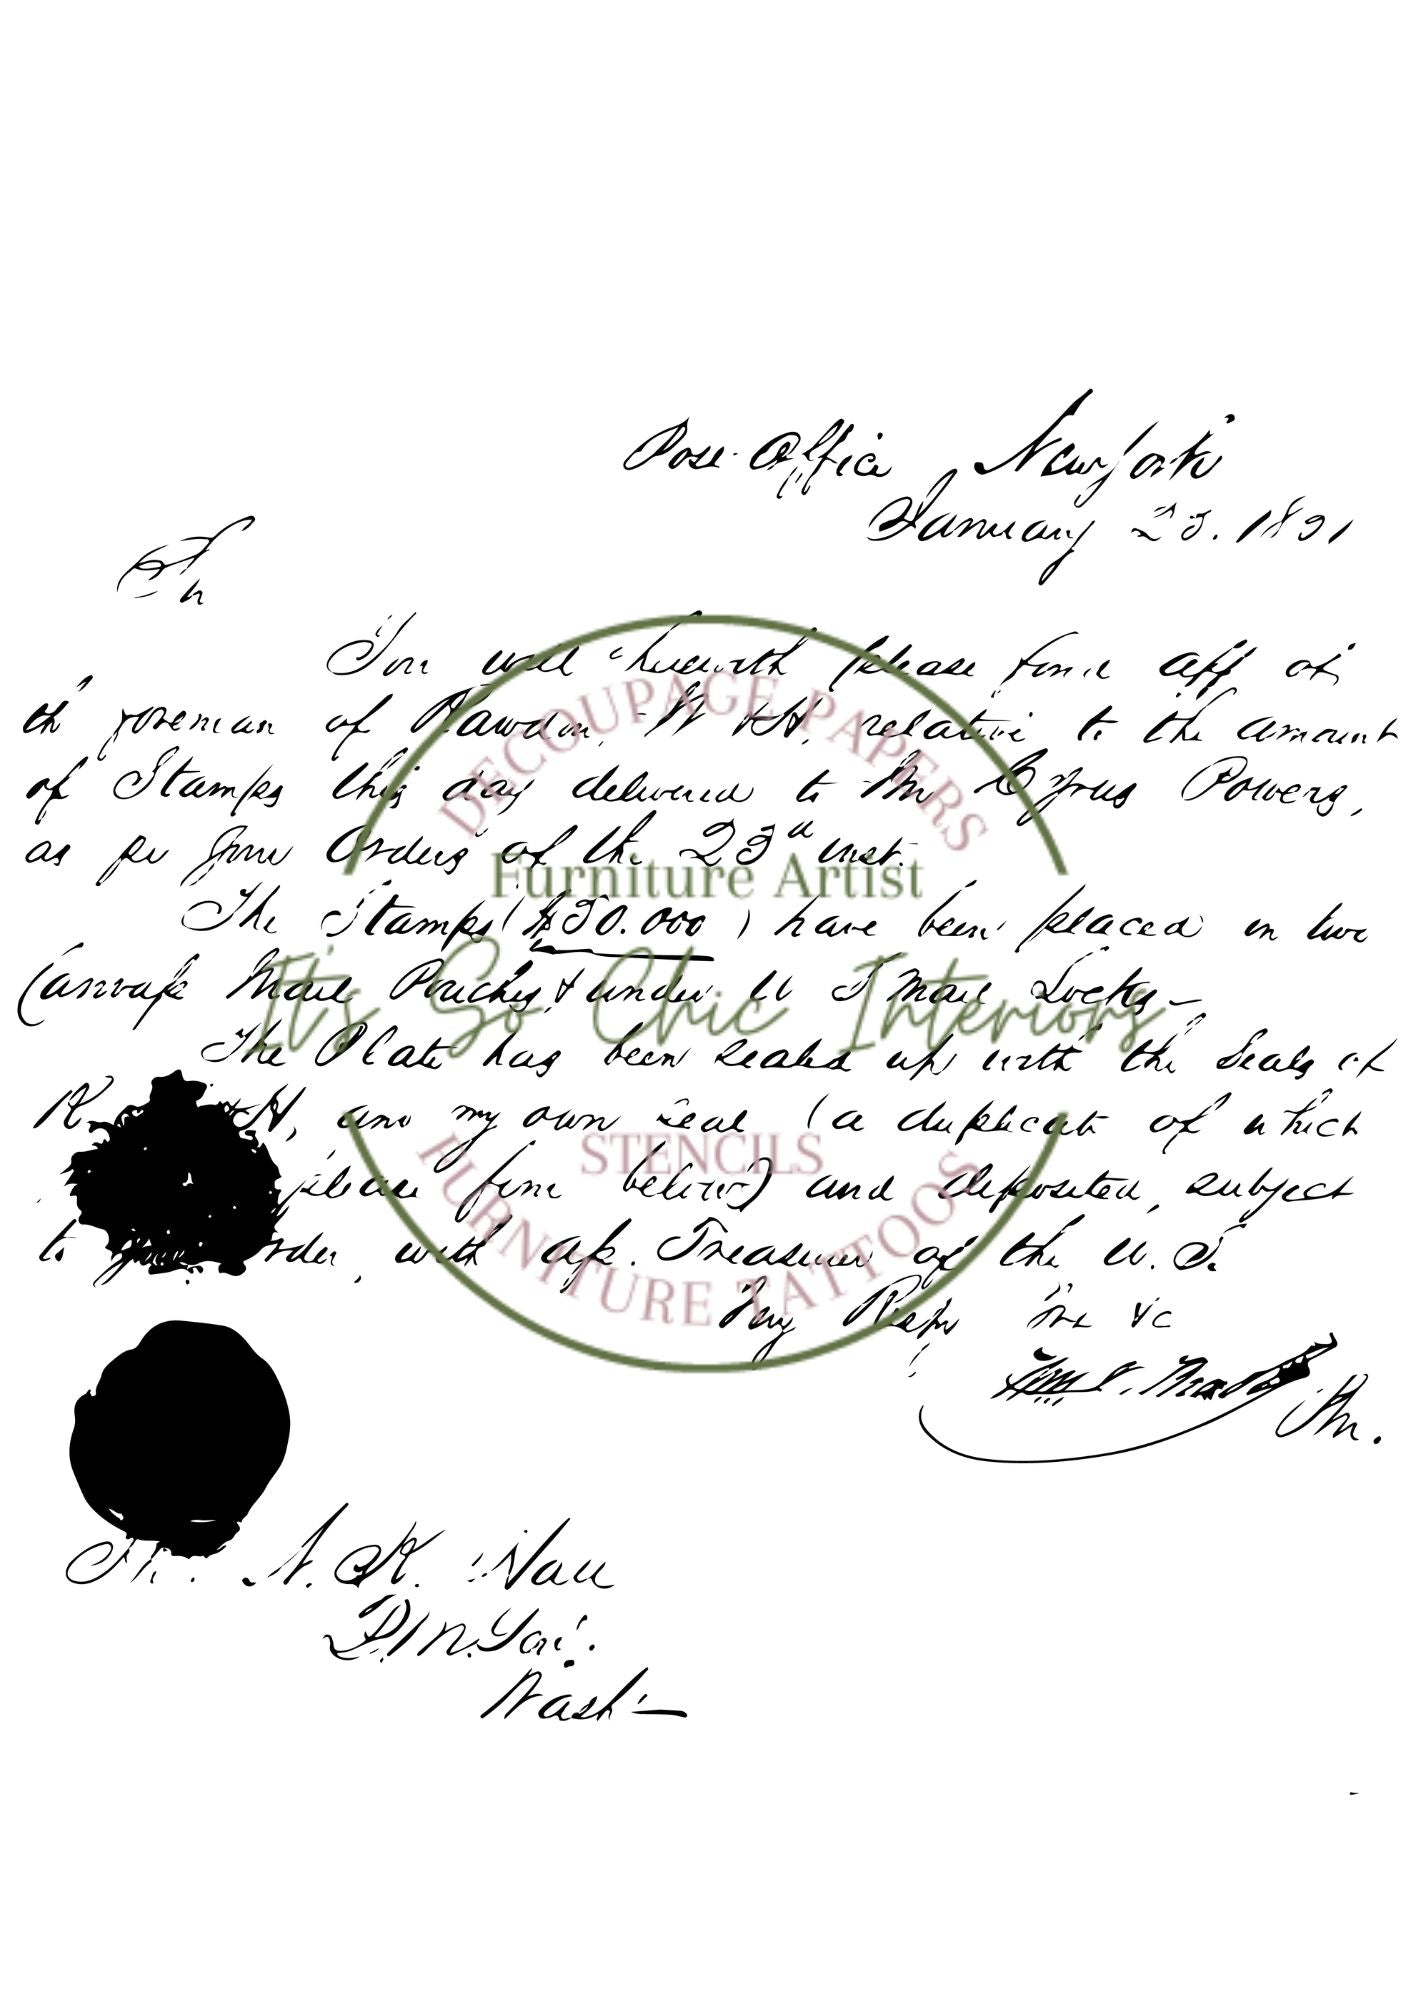 Post Office New York
January 23. 1851
Sir
You will herewith please find aff of
the foreman of Rawdon, W &H, relative to the amount
of Stamps this day delivered to Mr Cyrus Powers,
as per your Orders of the 23d inst.
The Stamps ($50.000) have been placed in two
Canvass Mail Pouches, & under U S Mail Locks –
The Plate has been sealed up with the Seals of
R. &H, and my own seal (a duplicate of which
please find below) and deposited, subject
to your order, with as. Treasurer of the U. S.
Very Resp &c
Wm V. Brady
P.m.
N. K. Hall
P.M. Gen.
Wash –
DECOUPAGE PAPERS
Furniture Artist
It's So Chic Interiors
STENCILS
FURNITURE TATTOOS